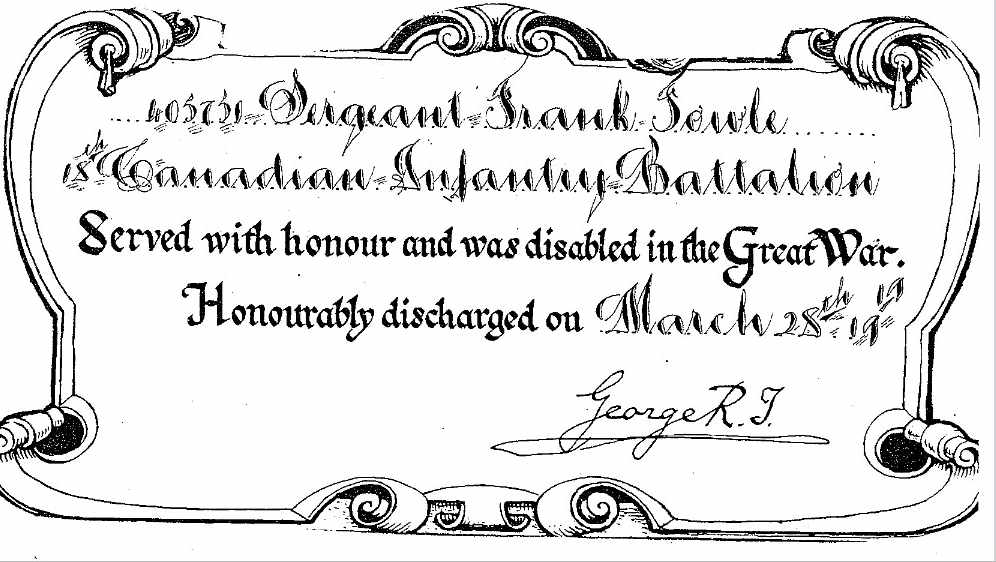 Sergeant Frank Fowle
18th Canadian Infantry Battalion
Served with honour and was disabled in the Great War.
Honourably discharged on March 28th 1919
George R.I.